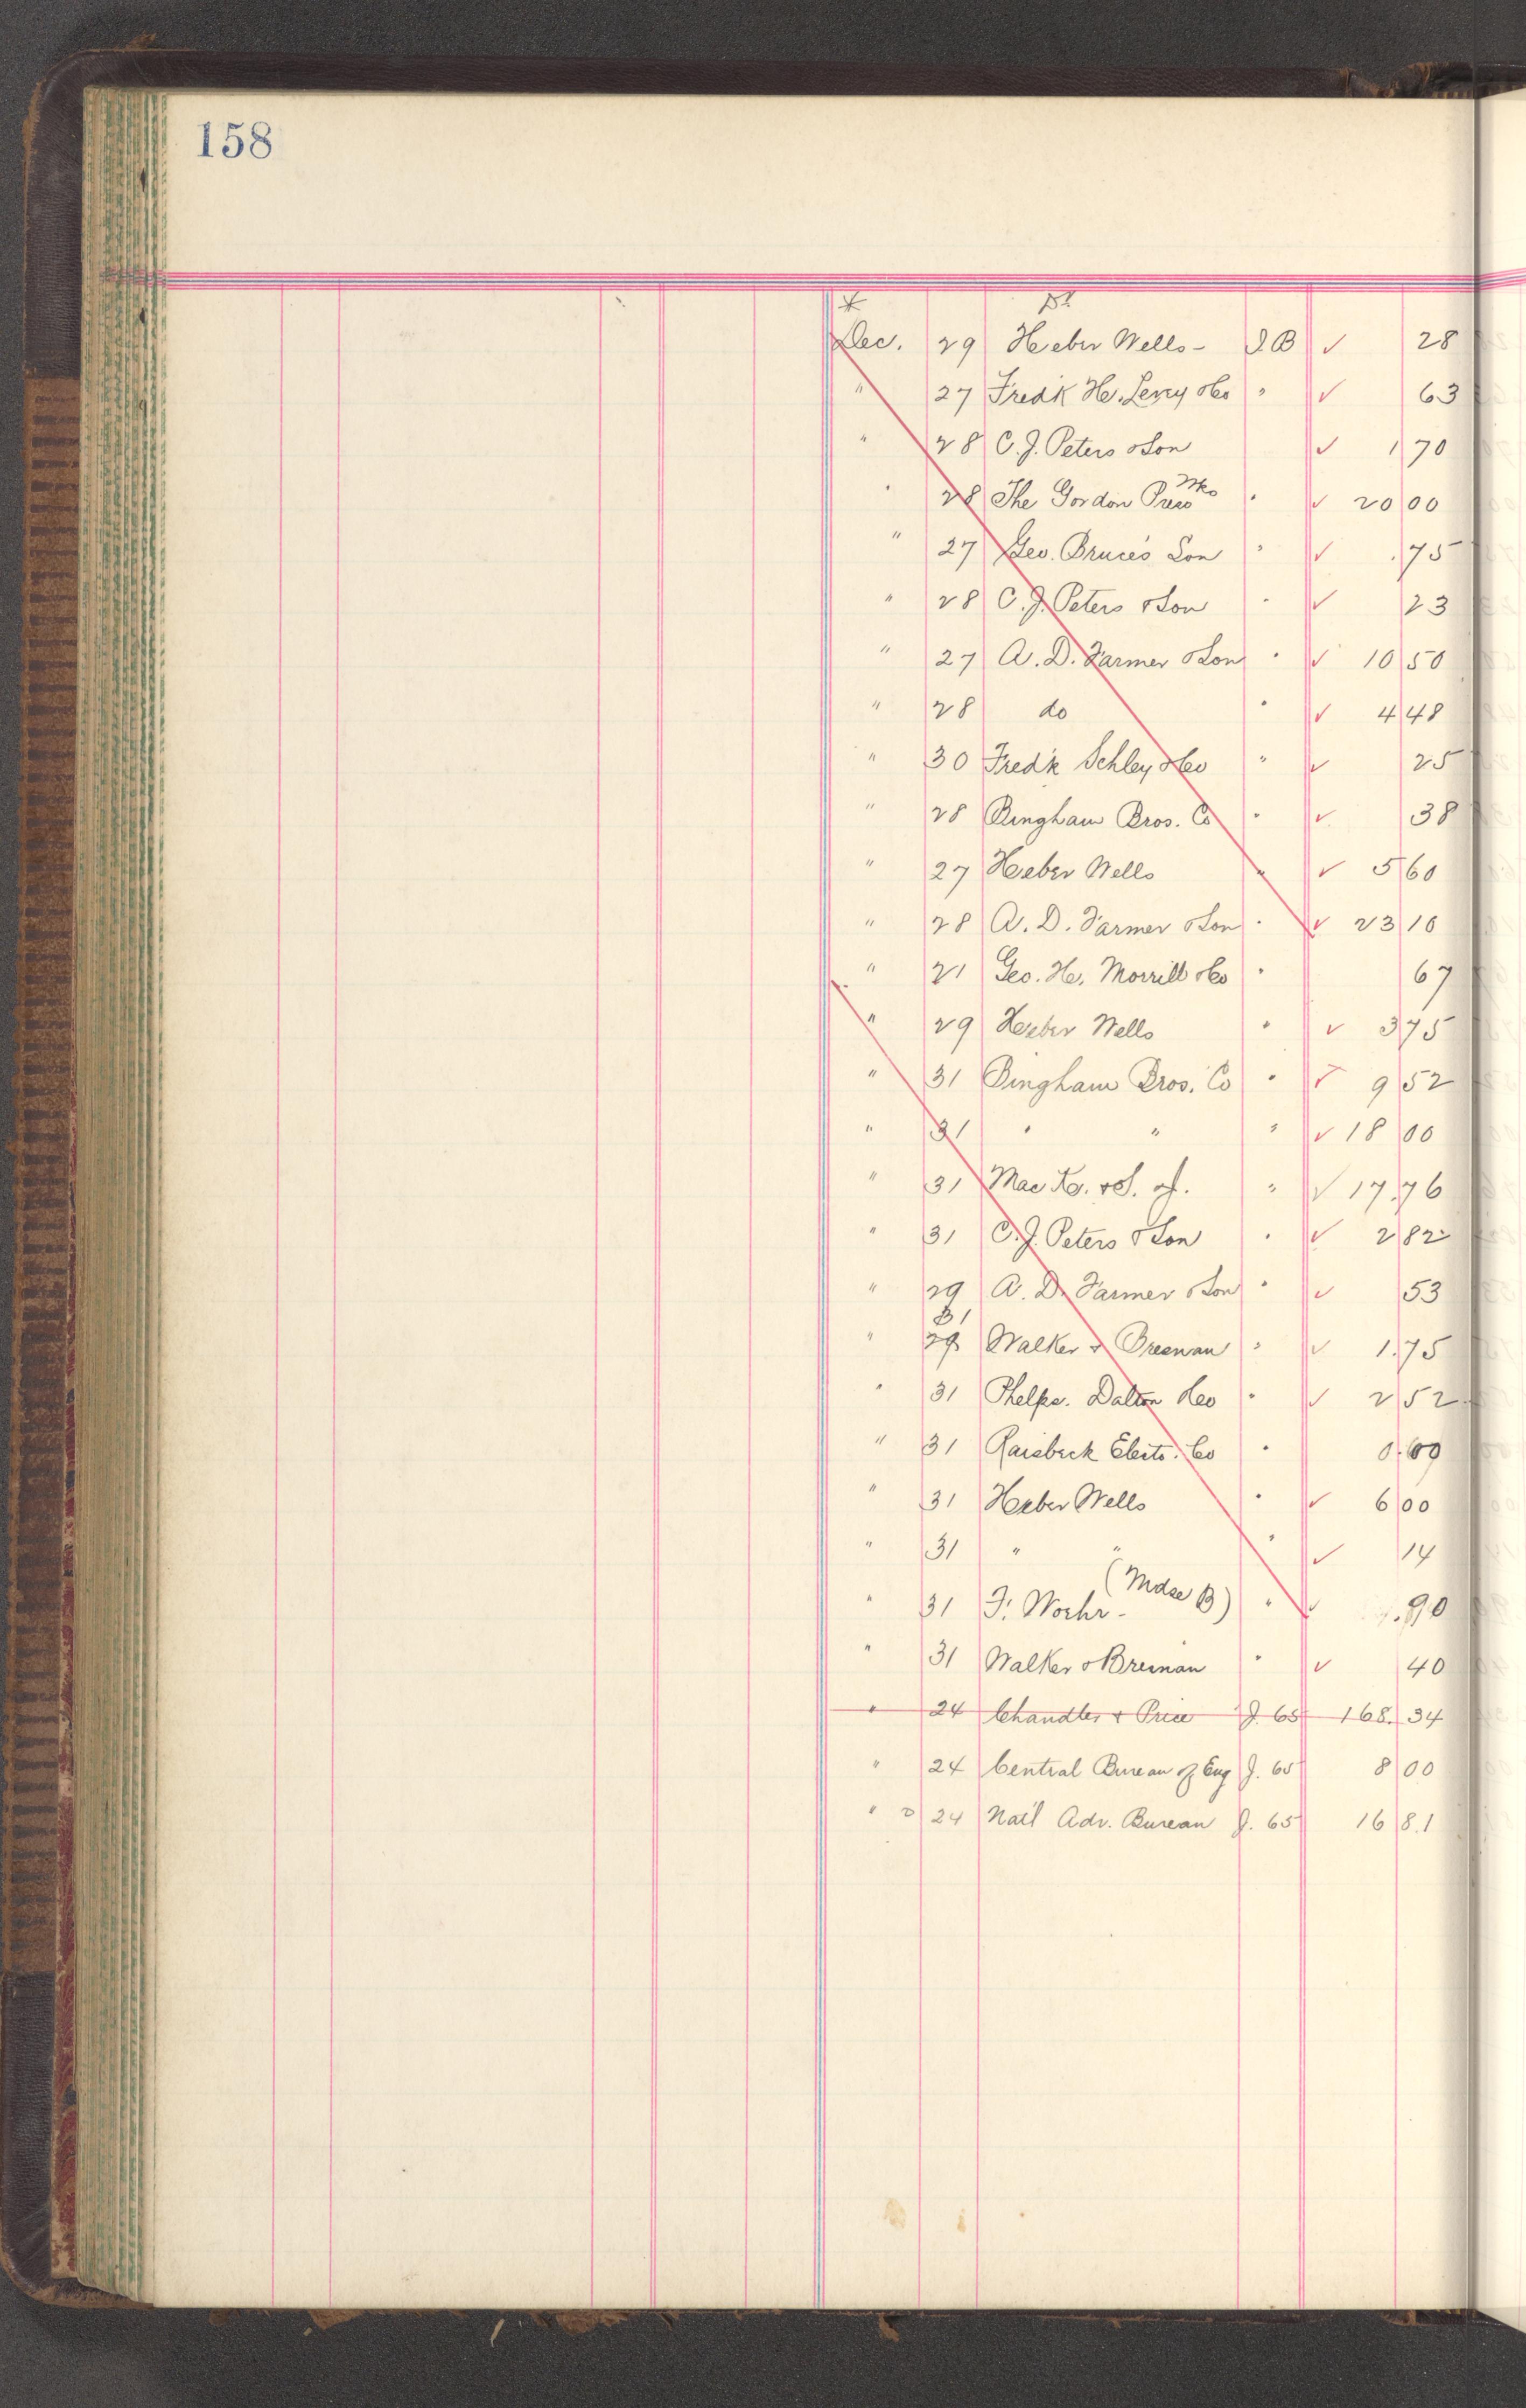 158
Dec. 29 Heber Wells - I B ✓ 28
" 27 Fredk H. Levey & Co " ✓ 63
" 28 C. J. Peters & Son ✓ 1 70
" 28 The Gordon Press Wks " ✓ 20 00
" 27 Geo. Bruce's Son " ✓ .75
" 28 C. J. Peters & Son " ✓ 23
" 27 A. D. Farmer & Son " ✓ 10 50
" 28 do " ✓ 4 48
" 30 Fred'k Schley & Co " ✓ 25
" 28 Bingham Bros. Co " ✓ 38
" 27 Heber Wells " ✓ 5 60
" 28 A. D. Farmer & Son " ✓ 23 10
" 21 Geo. H. Morrill & Co " 67
" 29 Heber Wells " ✓ 3 75
" 31 Bingham Bros. Co " ✓ 9 52
" 31 " " " ✓ 18 00
" 31 Mac K. & S. & J. " ✓ 17.76
" 31 C. J. Peters & Son " ✓ 2 82
" 29 A. D. Farmer & Son " ✓ 53
31
" 29 Walker & Bresnan " ✓ 1.75
" 31 Phelps. Dalton & Co " ✓ 2 52
" 31 Raisbeck Electo. Co " 0.60
" 31 Heber Wells " ✓ 6 00
" 31 " " " ✓ 14
" 31 F. Woehr - (Mdse B) " ✓ .90
" 31 Walker & Bresnan " ✓ 40
" 24 Chandler & Price J. 65 168. 34
" 24 Central Bureau of Eng J. 65 8 00
" 24 Nat'l Adv. Bureau J. 65 16 8.1